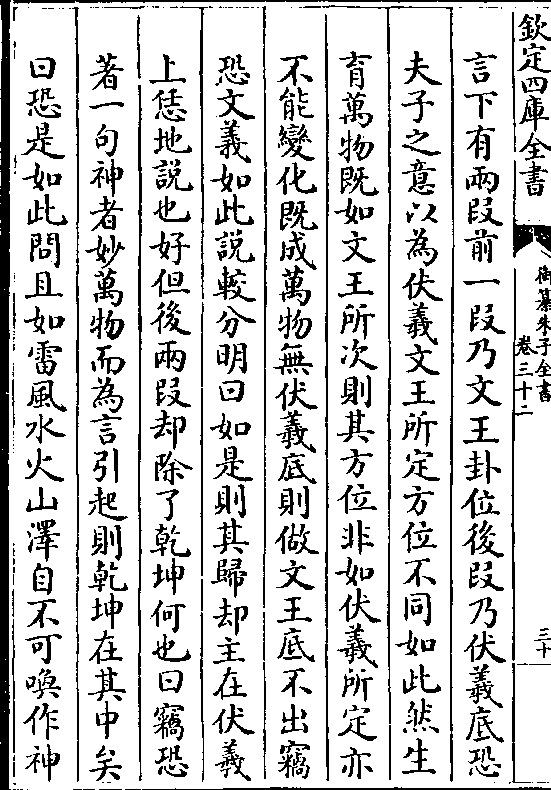 欽定四庫全書
御纂朱子全書
卷三十二
三十
言下有兩段前一段乃文王卦位後段乃伏羲底恐
夫子之意以為伏羲文王所定方位不同如此然生
育萬物既如文王所次則其方位非如伏羲所定亦
不能變化既成萬物無伏羲底則做文王底不出竊
恐文義如此說較分明曰如是則其歸却主在伏羲
上恁地說也好但後兩段却除了乾坤何也曰竊恐
著一句神者妙萬物而為言引起則乾坤在其中矣
曰恐是如此問且如雷風水火山澤自不可喚作神